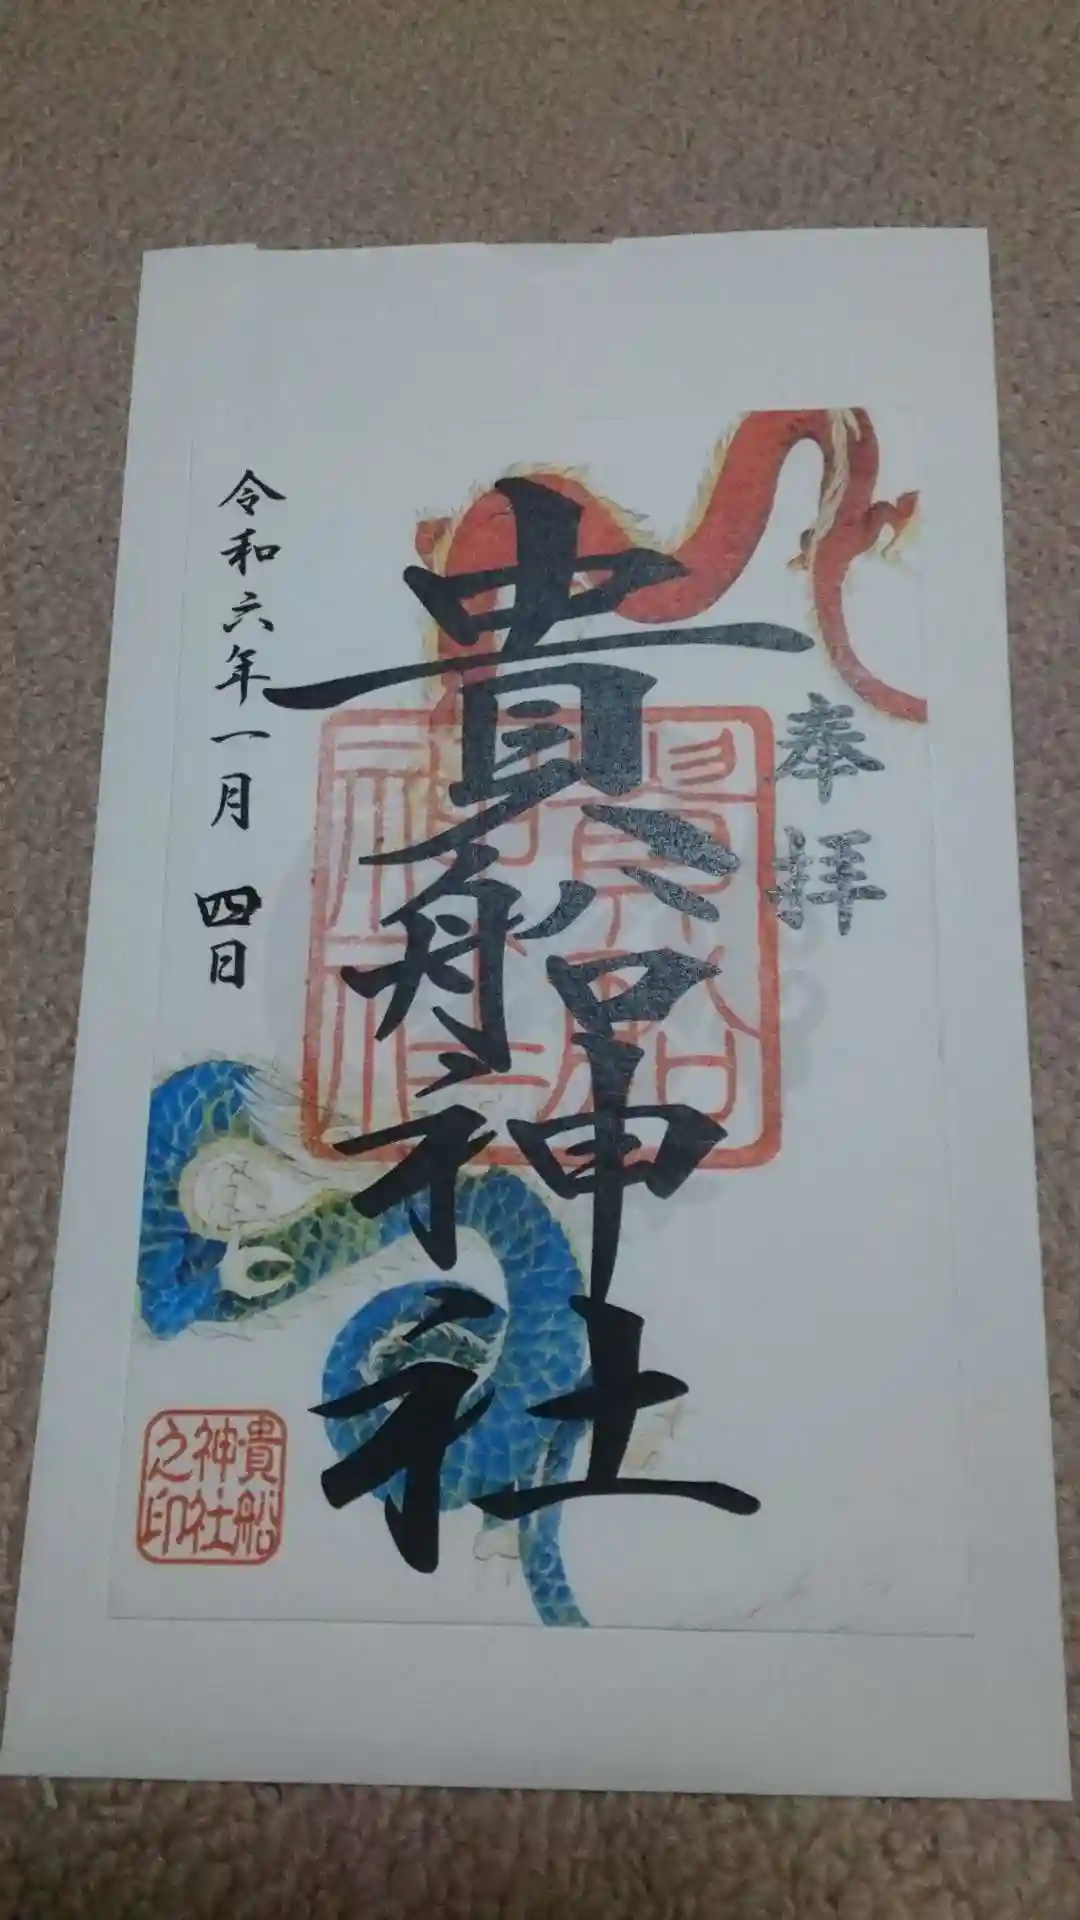 奉拝
貴船神社
令和六年一月四日
貴船神社
貴船
神社
之印